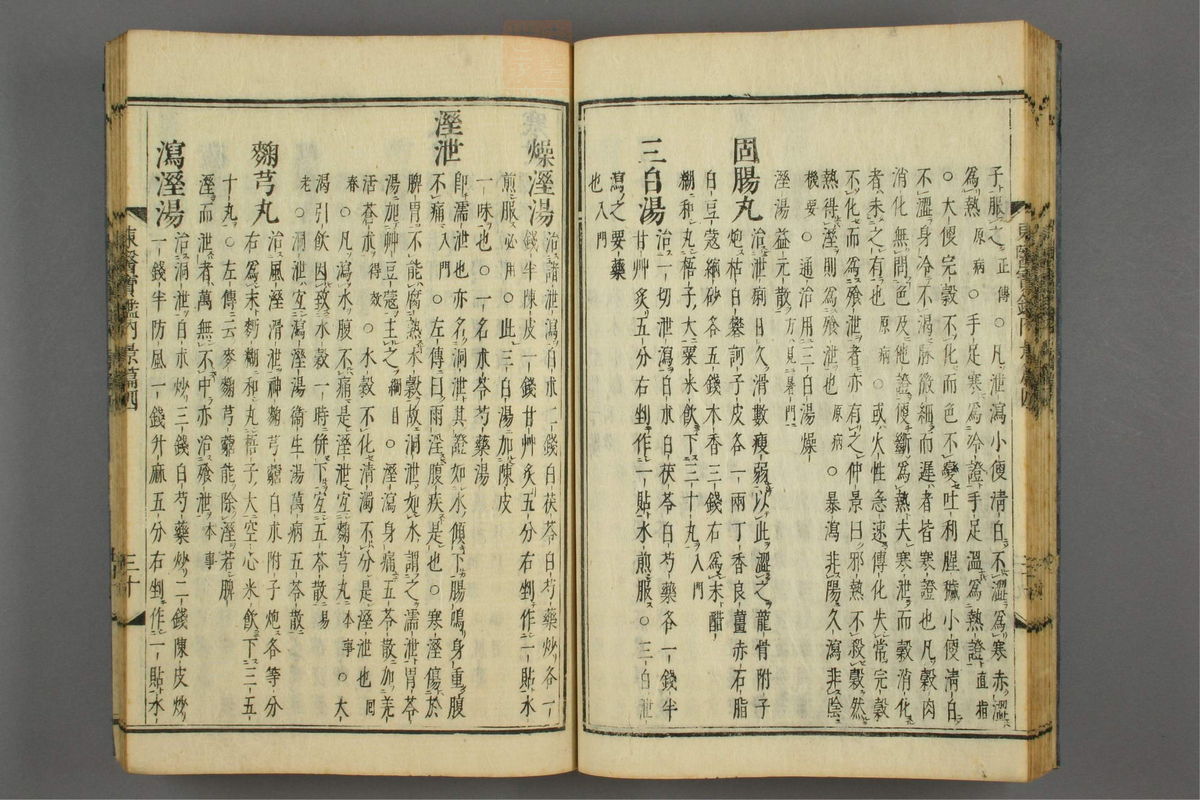 子服之正傳○凡泄瀉小便清白不澀爲寒赤澀
爲熱原病○手足寒爲冷證手足溫爲熱證直指
○大便完穀不化而色不變吐利腥穢小便清白
不澀身冷不渴脉微細而遲者皆寒證也凡穀肉
消化無問色及他證便斷爲熱夫寒泄而穀消化
者未之有也原病○或火性急速傳化失常完穀
不化而爲飱泄者亦有之仲景曰邪熱不殺穀然
熱得溼則爲飱泄也原病○暴瀉非陽久瀉非陰
機要○通治用三白湯燥
溼湯益元散方見暑門
固腸丸治泄痢日久滑數瘦弱以此澀之龍骨附子
炮枯白礬訶子皮各一兩丁香良薑赤石脂
白豆蔻縮砂各五錢木香三錢右爲末醋
糊和丸梧子大粟米飮下三十丸入門
三白湯治一切泄瀉白朮白茯苓白芍藥各一錢半
甘艸炙五分右剉作一貼水煎服○三白泄
瀉之要藥
也入門
燥溼湯治諸泄瀉白朮二錢白茯苓白芍藥炒各一
錢半陳皮一錢甘艸炙五分右剉作一貼水
煎服必用○此三白湯加陳皮
一味也○一名朮苓芍藥湯
溼泄卽濡泄也亦名洞泄其證如水傾下腸鳴身重腹
不痛入門○左傳曰雨淫腹疾是也○寒溼傷於
脾胃不能腐熟水穀故洞泄如水謂之濡泄胃苓
湯加艸豆蔻主之綱目○溼瀉身痛五苓散加羌
活蒼朮得效○水穀不化清濁不分是溼泄也回
春○凡瀉水腹不痛是溼泄宜麴芎丸本事○大
渴引飮因致水穀一時倂下宜五苓散易
老○洞泄宜瀉溼湯衛生湯萬病五苓散
麴芎丸治風溼滑泄神麴芎藭白朮附子炮各等分
右爲末麪糊和丸梧子大空心米飮下三五
十丸○左傳云麥麴芎藭能除溼若脾
溼而泄者萬無不中亦治飱泄本事
瀉溼湯治洞泄白朮炒三錢白芍藥炒二錢陳皮炒
一錢半防風一錢升麻五分右剉作一貼水
東醫寶鑑內景篇四
三十